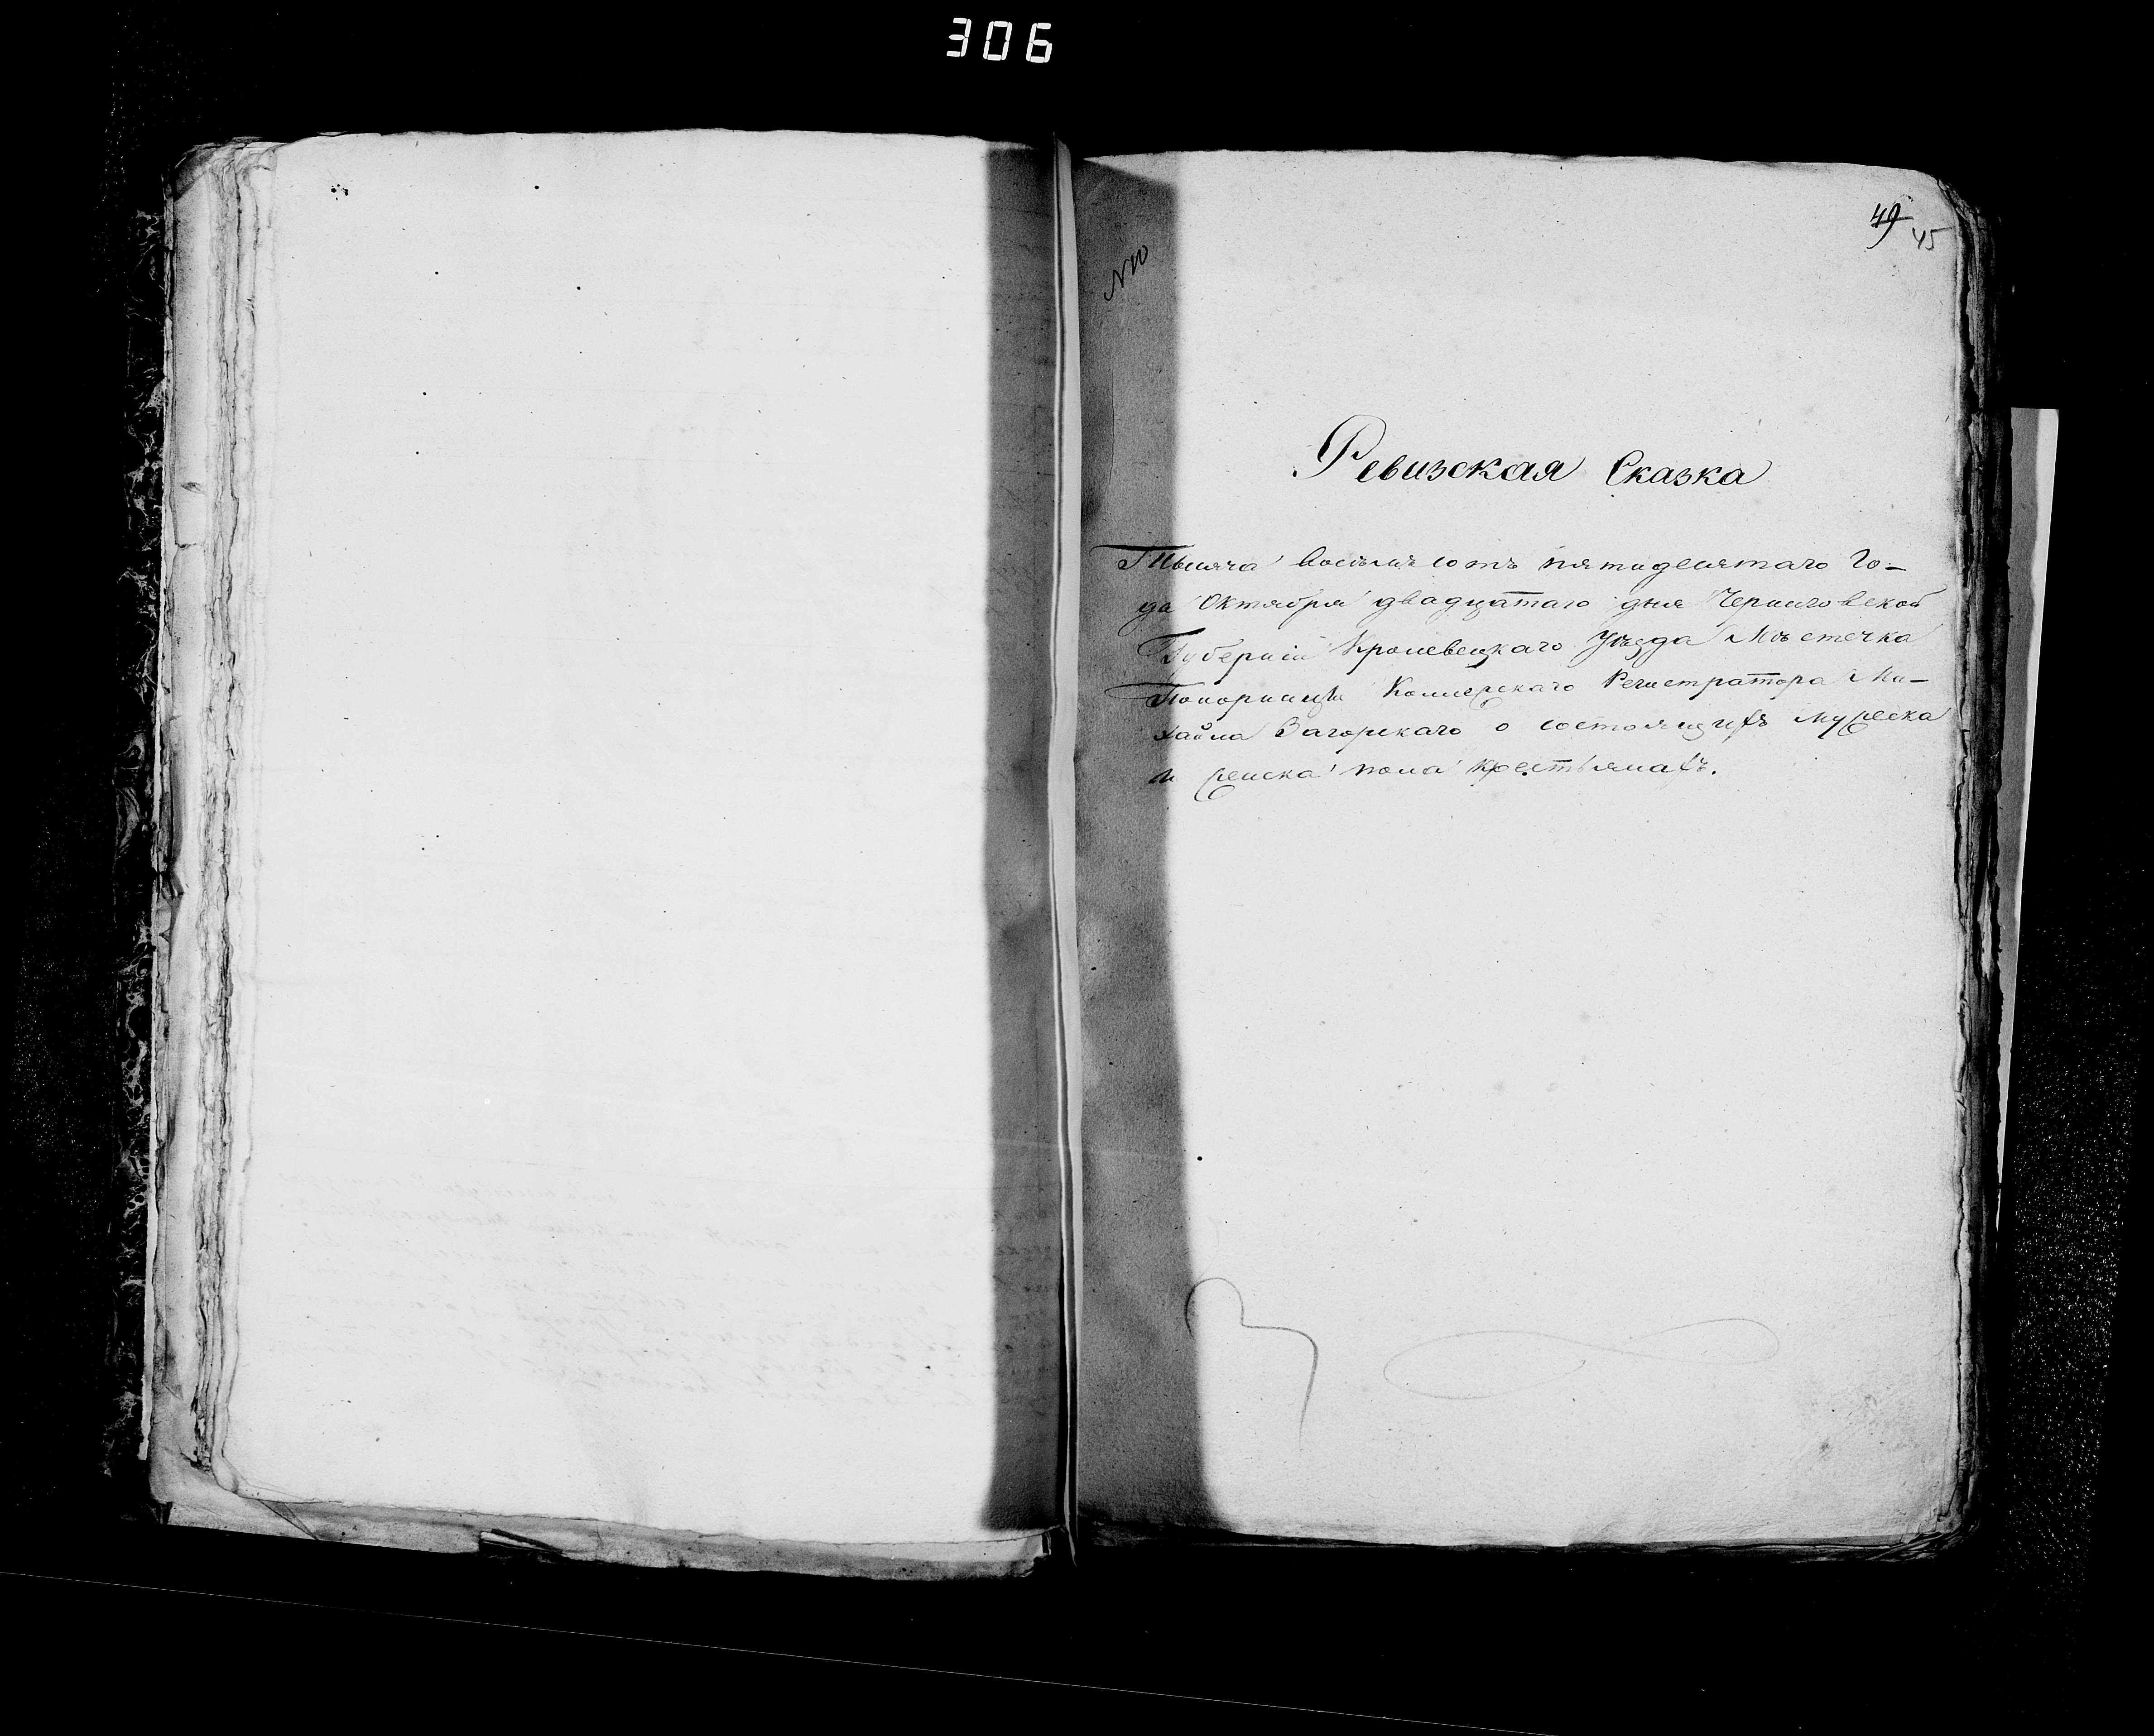 306
49
45
N 10
Ревизская Сказка
Тысяча восемь сотъ пятидесятаго Го-
да Октября двадцатаго дня Черниговской
Губерніи Кролевецкаго Уѣзда Мѣстечка
Понорницы Коллежскаго Регистратора Ми-
хайла Загорскаго о состоящихъ мужеска
и женска пола крестьянахъ.